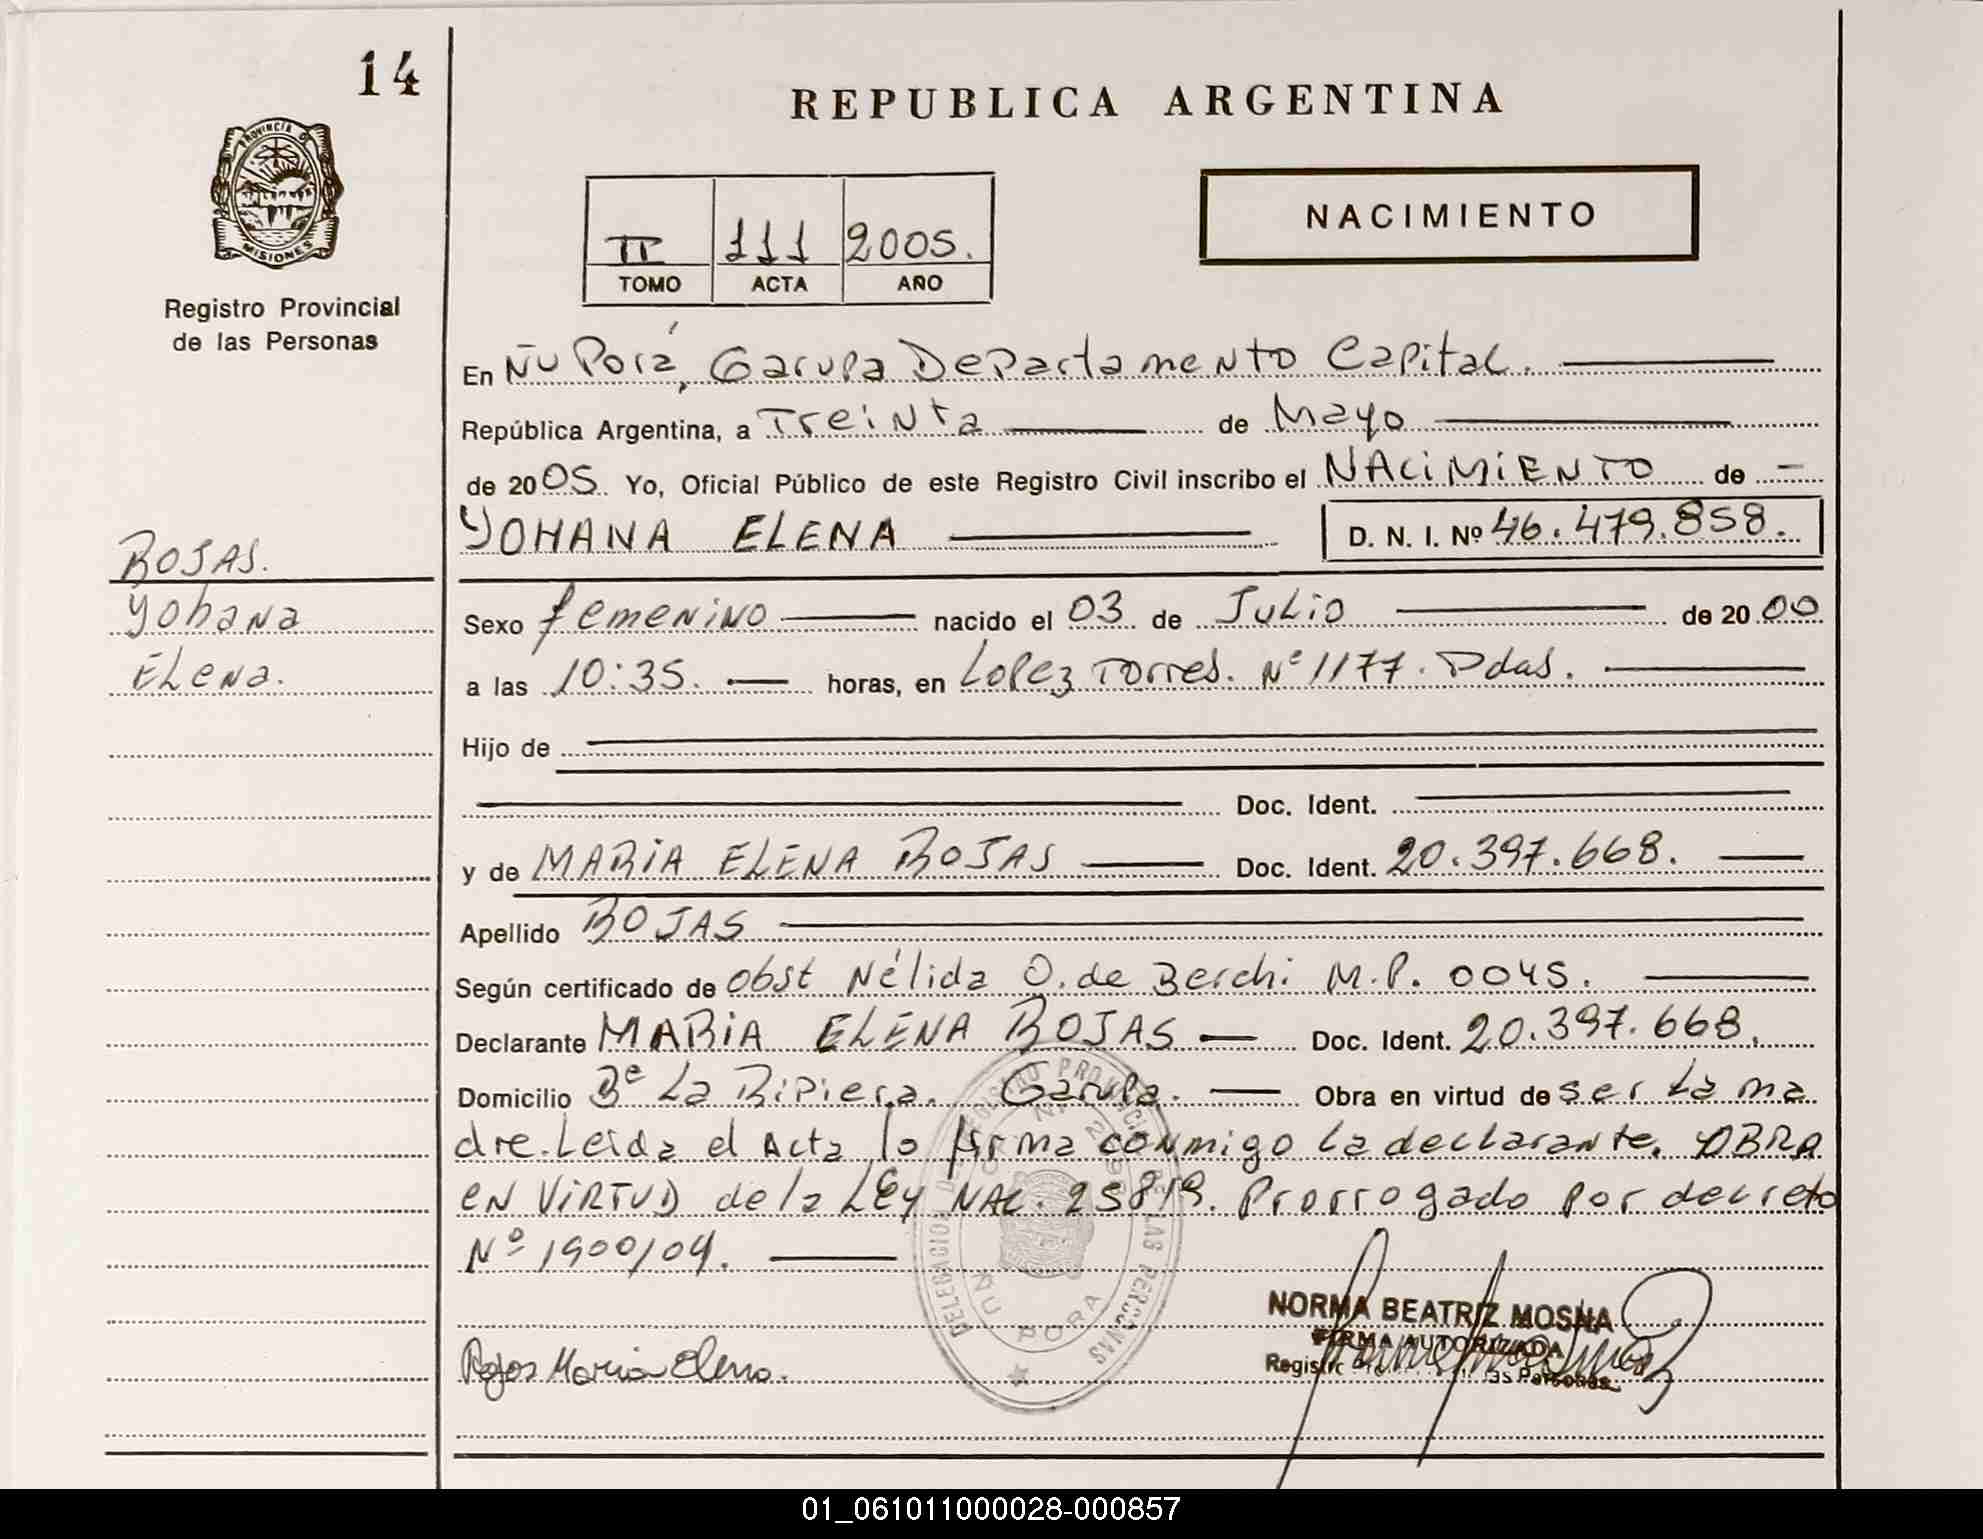 14
REPUBLICA ARGENTINA
PROVINCIA DE
MISIONES
Registro Provincial
de las Personas
II 111 2005.
TOMO ACTA AÑO
NACIMIENTO
En Ñu Porá, Garupa Departamento Capital.
República Argentina, a Treinta de Mayo
de 2005. Yo, Oficial Público de este Registro Civil inscribo el NACIMIENTO de
YOHANA ELENA D. N. I. Nº 46.479.858.
ROJAS.
Yohana
Elena.
Sexo femenino nacido el 03 de Julio de 2000
a las 10:35. horas, en Lopez Torres. Nº 1177. Pdas.
Hijo de
Doc. Ident.
y de MARIA ELENA ROJAS Doc. Ident. 20.397.668.
Apellido ROJAS
Según certificado de Obst Nélida O. de Berchi M.P. 0045.
Declarante MARIA ELENA ROJAS Doc. Ident. 20.397.668.
Domicilio Bº La Ripiera. Garupa. Obra en virtud de ser la ma
dre. Leida el Acta lo firma conmigo la declarante. OBRA
EN VIRTUD de la LEY NAC. 25819. Prorrogado por decreto
Nº 1900/04.
DELEGACION DEL REGISTRO PROVINCIAL DE LAS PERSONAS
ÑU PORA
NORMA BEATRIZ MOSNA
FIRMA AUTORIZADA
Rojas Maria Elena.
01_061011000028-000857